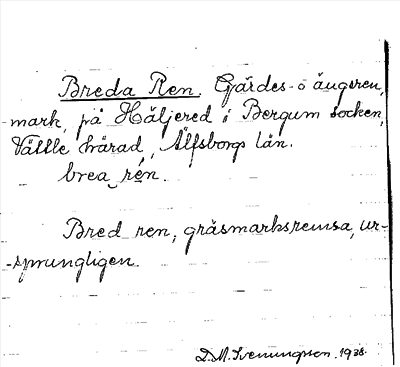 Breda Ren. Gärdes- o ängsren,
mark, på Häljered i Bergum socken,
Vättle härad, Älfsborgs län.
brea rén.
Bred ren, gräsmarksremsa, ur-
sprungligen.
D.M. Svenungsson. 1938.